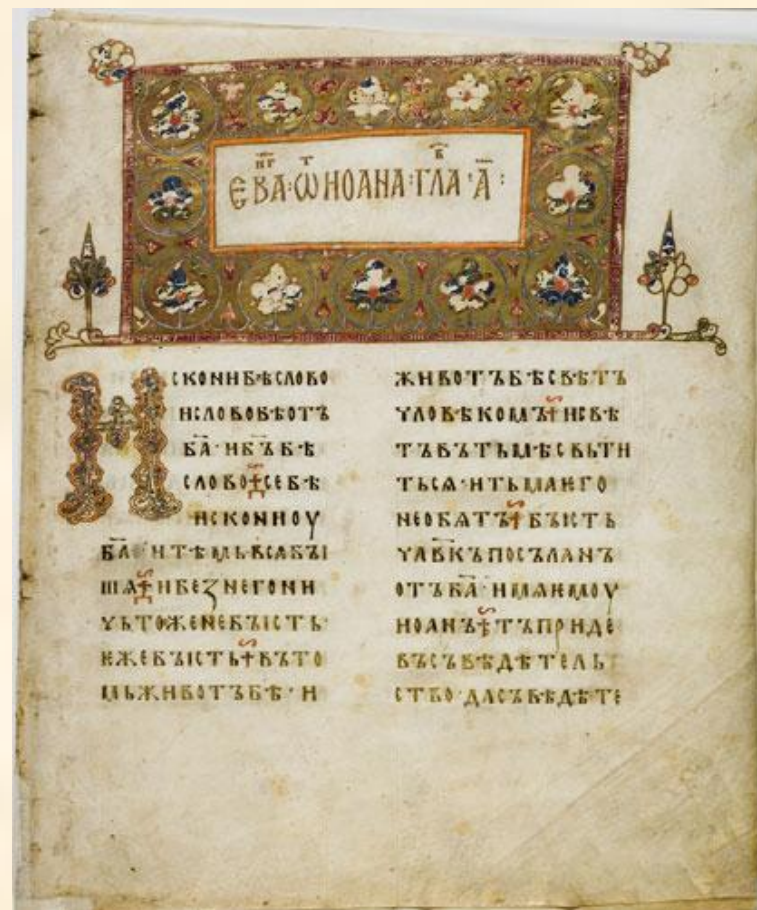 ЄВА·Ѡ ИОАНА·ГЛА·А҃:
ИСКОНИБѢСЛОВО
ИСЛОВОБѢОТЪ
БА҃·ИБЪ҃БѢ
СЛОВО‡СЕБѢ
ИСКОНИОУ
БА҃·ИТѢМЬВСꙖБЪІ
ШѦ‡ИБЕЗНЕГОНИ
ЧЬТОЖЕНЕБЪІСТЬ·
ѤЖЕБЪІСТЬ‡ВЪТО
МЬЖИВОТЪБѢ·И
ЖИВОТЪБѢСВѢТЪ
ЧЛОВѢКОМЪ‡ИСВѢ
ТЪВЪТЬМѢСВЬТИ
ТЬСѦ·ИТЬМАѤГО
НЕОБѦТЪ‡БЪІСТЬ
ЧЛ҃ВКЪПОСЪЛАНЪ
ОТЪБА҃·ИМѦѤМОУ
ИОАНЪ‡ТЪПРИДЕ
ВЪСЪВѢДѢТЕЛЬ
СТВО·ДАСЪВѢДѢТЕ